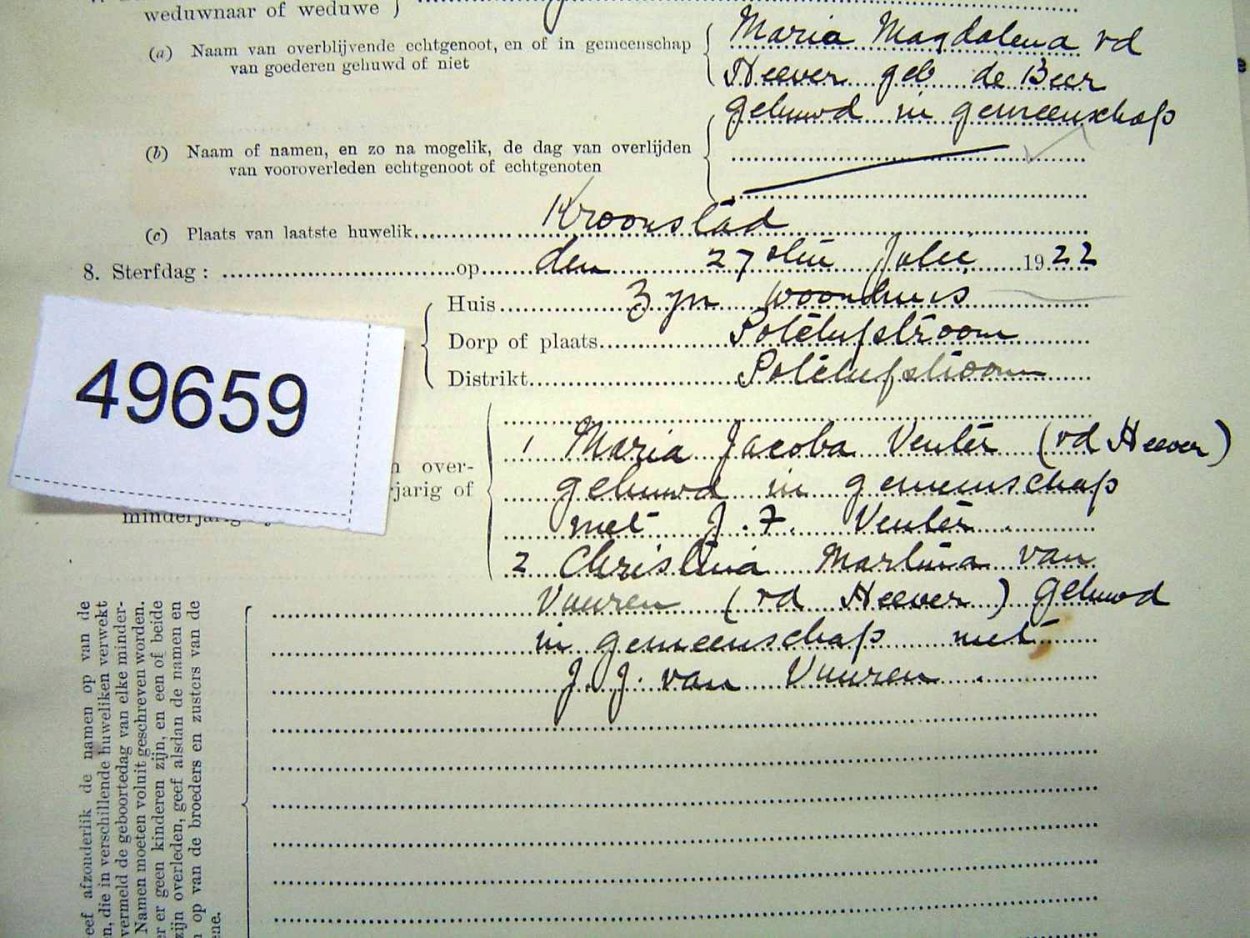 weduwnaar of weduwe
(a) Naam van overblijvende echtgenoot, en of in gemeenschap
van goederen gehuwd of niet
Maria Magdalena vd
Heever geb de Beer
gehuwd in gemeenschap
(b) Naam of namen, en zo na mogelik, de dag van overlijden
van vooroverleden echtgenoot of echtgenoten
(c) Plaats van laatste huwelik Kroonstad
8. Sterfdag : op den 27 sten Julie 1922
Huis Zyn woonhuis
Dorp of plaats Potchefstroom
Distrikt Potchefstroom
49659
over-
jarig of
minderjarig
1 Maria Jacoba Venter (vd Heever)
gehuwd in gemeenschap
met J. F. Venter
2 Christina Martina van
Vuuren (vd Heever) gehuwd
in gemeenschap met
J. J. van Vuuren
eef afzonderlik de namen op van de
n, die in verschillende huweliken verwekt
vermeld de geboortedag van elke minder-
Namen moeten voluit geschreven worden.
er geen kinderen zijn, en een of beide
zijn overleden, geef alsdan de namen en
op van de broeders en zusters van de
ene.